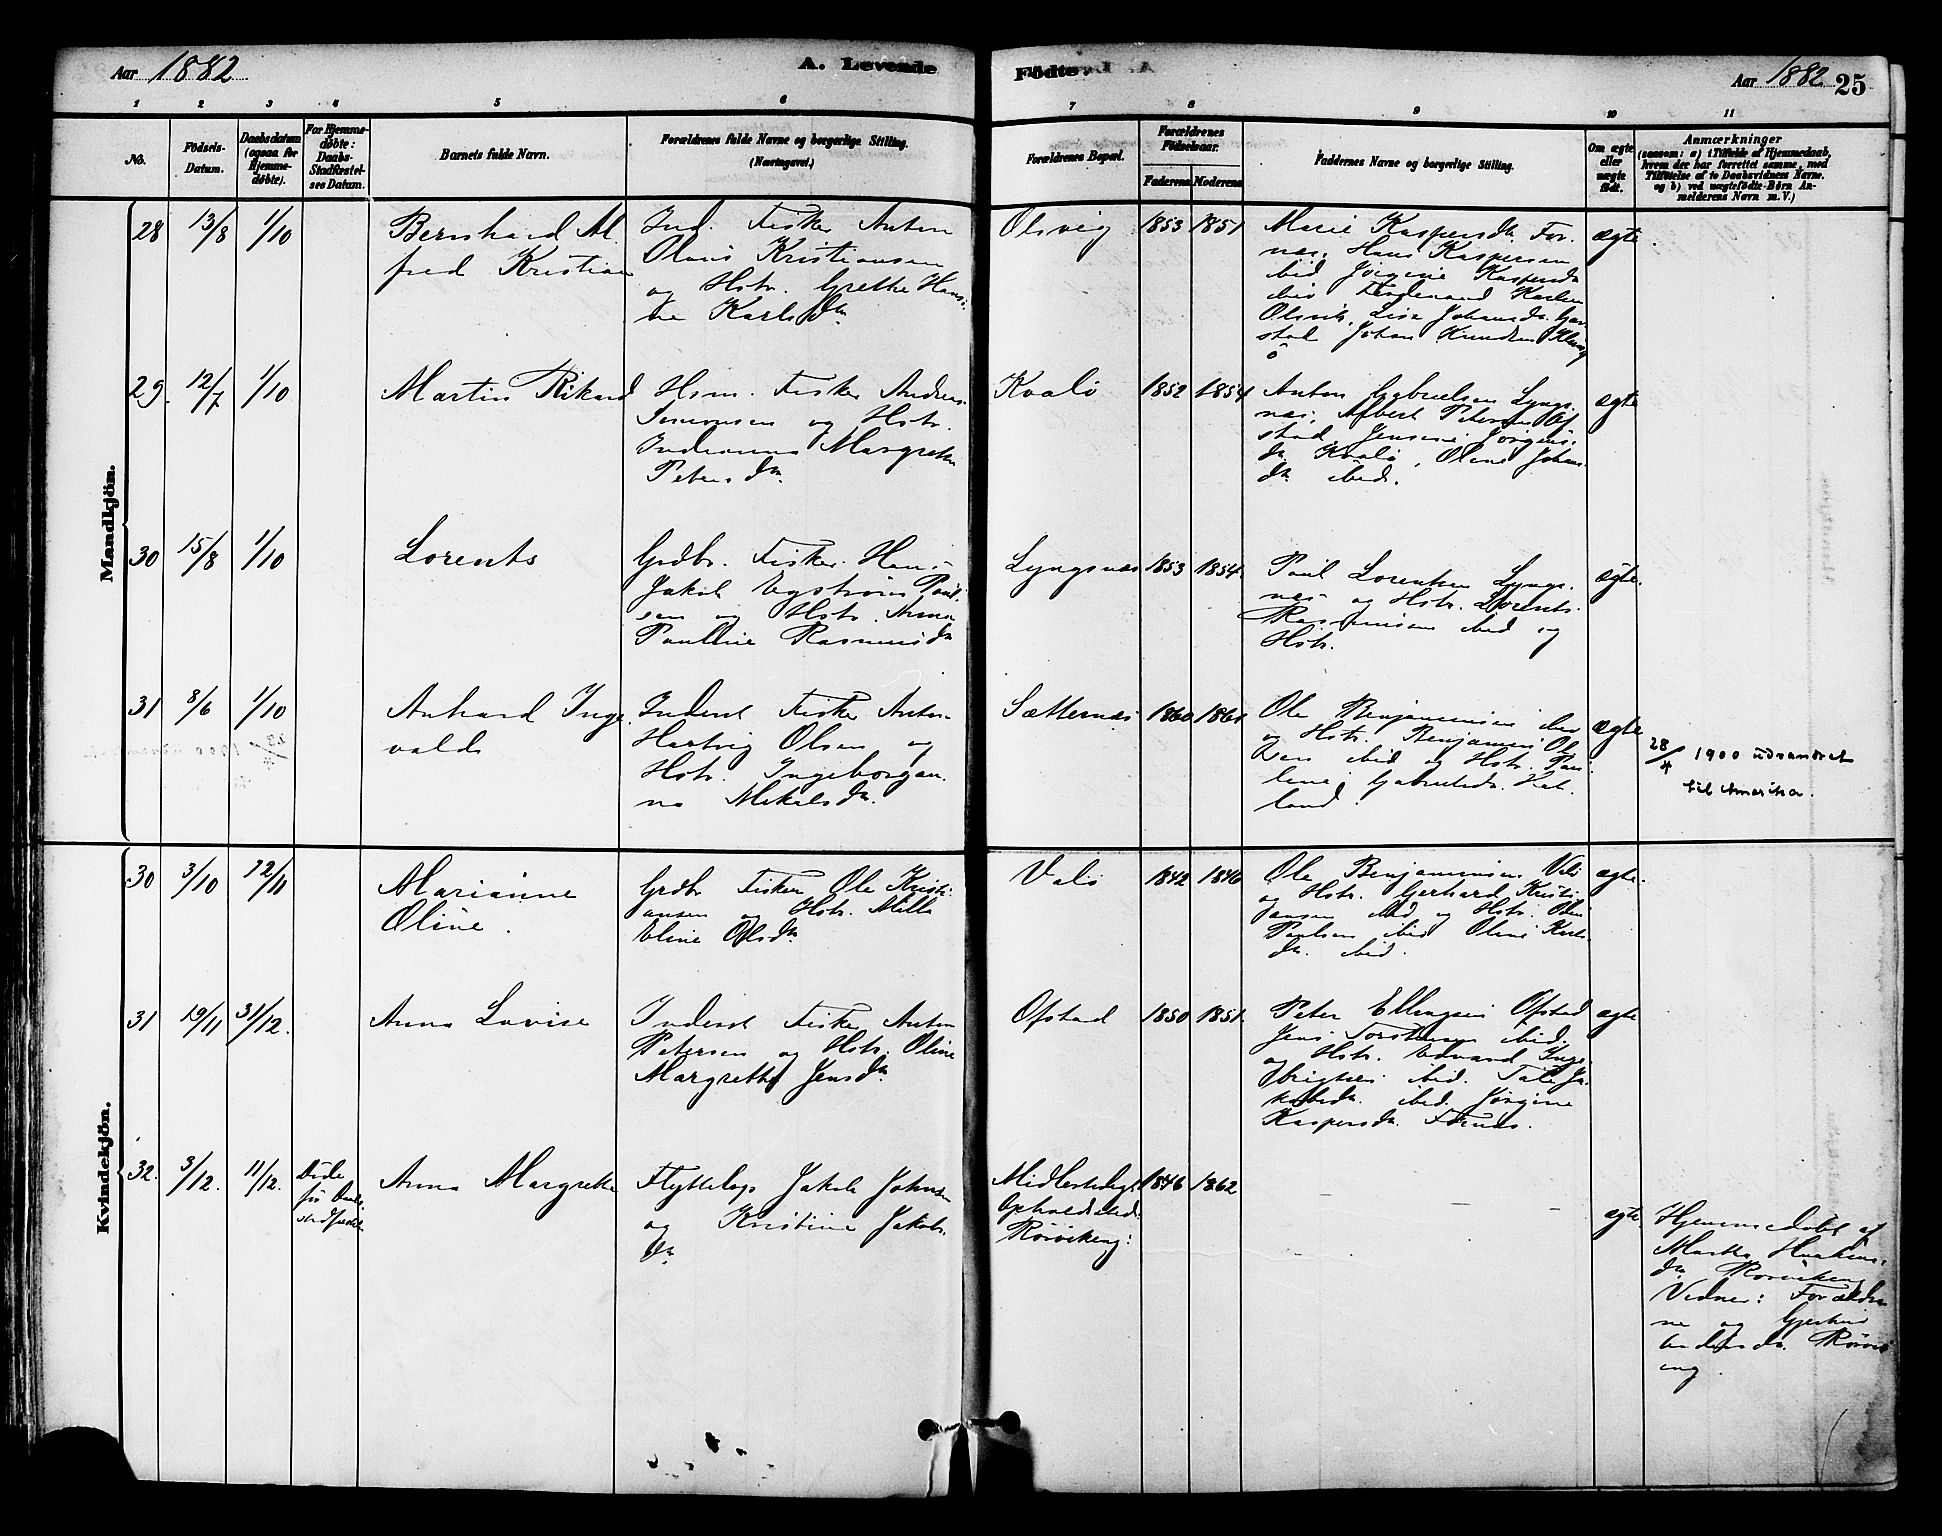 Aar 1882
A. Levende
Födte.
Aar 1882
25
1 2 3 4 5 6 7 8 9 10 11
No.
Födsels-
Datum.
Daabsdatum
(ogsaa for
Hjemme-
døbte).
For Hjemme-
døbte:
Daabs-
Stadfæstel-
ses Datum.
Barnets fulde Navn.
Forældrenes fulde Navne og borgerlige Stilling.
(Næringsvei.)
Forældrenes Bopæl.
Forældrenes
Födselsaar.
Faderens
Moderens
Faddernes Navne og borgerlige Stilling.
Om ægte
eller
uægte
født.
Anmærkninger
(saasom: a) i Tilfælde af Hjemmedaab,
hvem der har forrettet samme, med
Tilföielse af to Daabsvidners Navne,
og b) ved uægtefödte Börn An-
melderens Navn m.V.)
Mandkjön.
28
13/8
1/10
Bernhard Al.
fred Kristian
Ind. Fisker Anton
Olaus Kristiansen
og Hstr. Grethe Hans:
ne Karlsdtr
Olsvig
1853
1851
Marie Kaspersdtr For.
næs. Hans Kaspersen
ibid Jørgine Kaspersdtr
ibid Ferdinand Karlsen
Olsvik, Lise Johansdtr
Johan Knudsen
ægte.
29.
12/7
1/10
Martin Rikard
Hsm. Fisker Andreas
Simonsen og Hstr.
Margrethe
Petersdtr.
Kvalö
1852
1854
Anton Gabrielsen Lyngs.
næs. Albert Petersen Of
stad. Jensine Jörgens.
dtr. Kvalö, Oline Johans
dtr ibid.
ægte
30
15/8
1/10
Lorents
Grdbr. Fisker Hans
Jakob Paul.
sen og Hstr. Anna
Pauline Rasmusdtr
Lyngsnæs
1853
1854.
Paul Lorentsen Lyngs.
næs og Hstr. Lorents
Rasmussen ibid og
Hstr.
ægte.
31
8/6
1/10
Anhard Inge
vald
Inderst Fisker Anton
Hartvig Olsen og
Hstr. Ingeborgan.
na Mikalsdtr.
Sætternæs
1860
1861
Ole Benjaminsen ibid
og Hstr. Benjamin Ol
sen ibid og Hstr. Pau
line Gabrielsdtr. Hat.
land.
ægte
28/4 1900 udvandret
til Amerika.
Kvindekjön.
30
3/10
12/11
Marianne
Oline.
Grdbr Fisker Ole Kristi
ansen og Hstr. Milla
Eline Olsdtr
Valö
1842
1846
Ole Benjaminsen Valö
og Hstr. Gerhard Kristi
ansen ibid og Hstr.
Paulsen ibid Oline Karls.
dtr. ibid.
ægte.
31
19/11
31/12.
Anna Lovise
Inderst Fisker Anton
Petersen og Hstr. Oline
Margrethe Jensdtr
Ofstad
1850
1851.
Peter Ellingsen Ofstad
Jens Torstensen ibid.
og Hstr. Edvard Inge.
brigtsen ibid. Tale Ja.
kobsdtr. ibid. Jørgine
Kaspersdtr. Fornæs.
ægte
32.
3/12.
11/12.
Døde
før Daabs
stadfæstel.
Anna Margrethe
Flyttelap Jakob Johnsen
og Kristine Jakobs.
dtr.
Midlertidigt
Opholdssted:
Rörvikeng:
1846
1862
ægte.
Hjemmedøbt af
Martha
dtr. Rörvikeng
Vidner: Forældre
ne og Gjertrud
Andersdtr. Rörvik
eng.